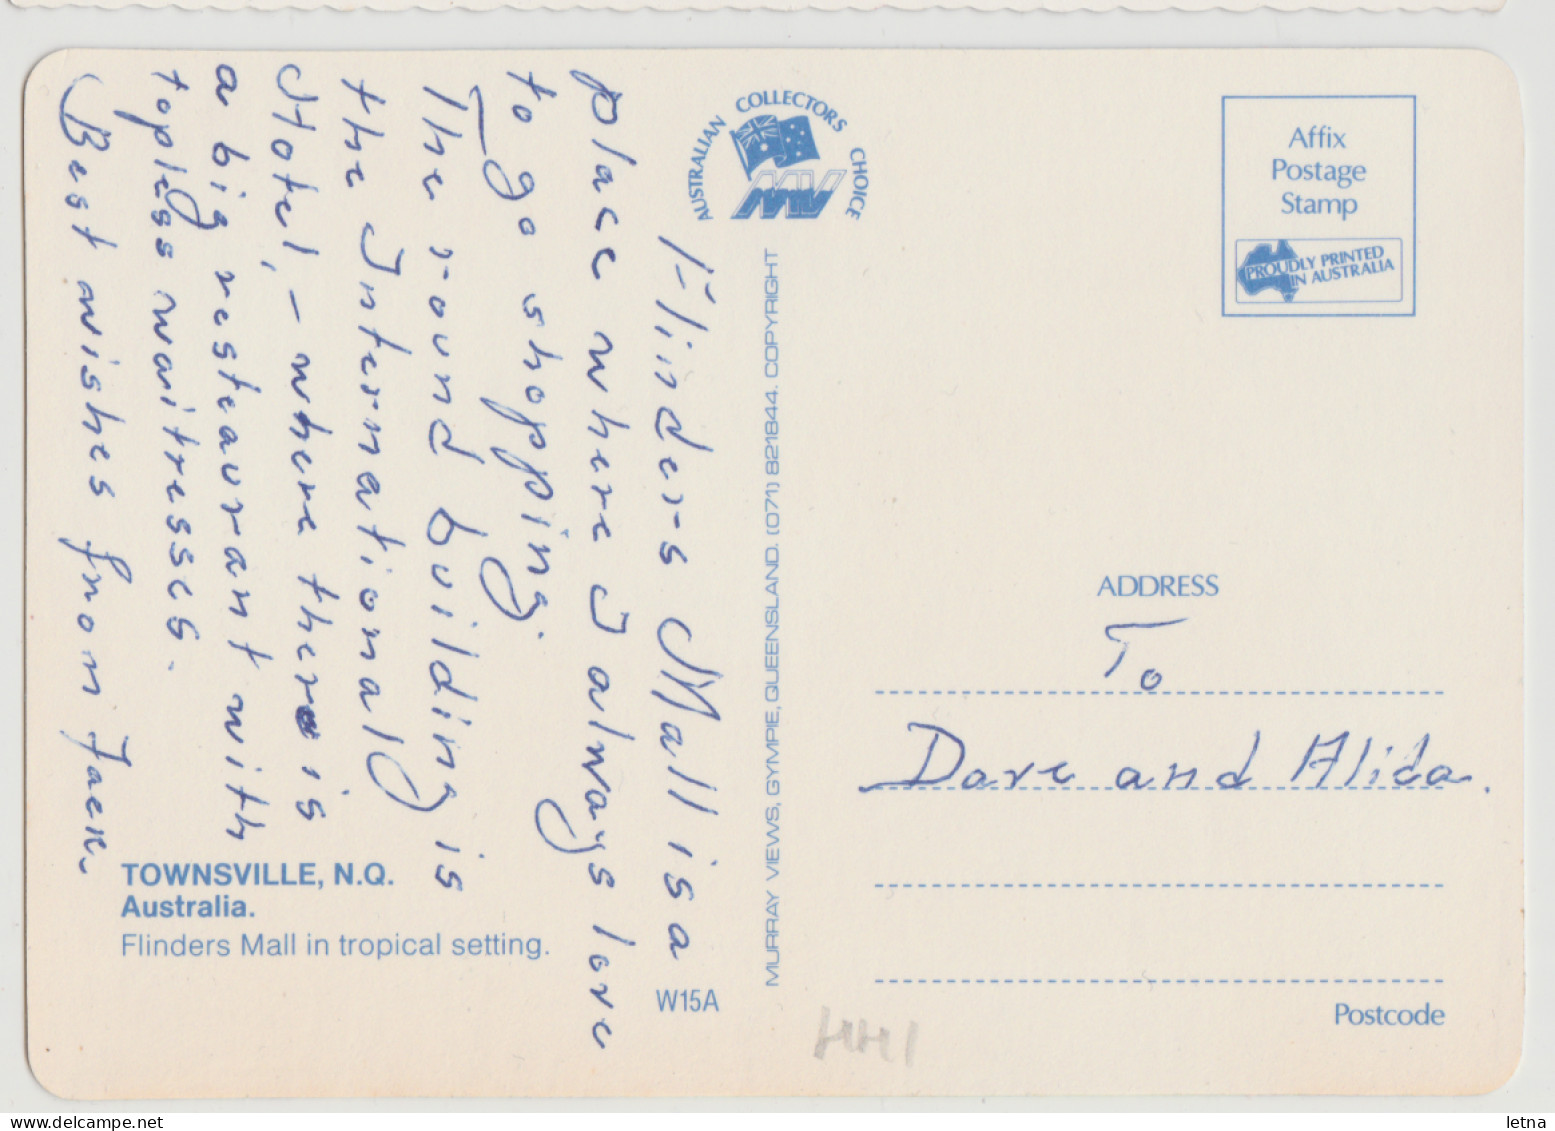 Flinders Mall is a
place where I always love
to go shopping.
The round building is
the Internationall
Hotel, - where there is
a big resteaurant with
topless waitresses.
Best wishes from Jack.
TOWNSVILLE, N.Q.
Australia.
Flinders Mall in tropical setting.
W15A
AUSTRALIAN COLLECTORS CHOICE
MV
MURRAY VIEWS, GYMPIE, QUEENSLAND. (071) 821844. COPYRIGHT
Affix
Postage
Stamp
PROUDLY PRINTED
IN AUSTRALIA
ADDRESS
To
Dave and Alida.
Postcode
letna